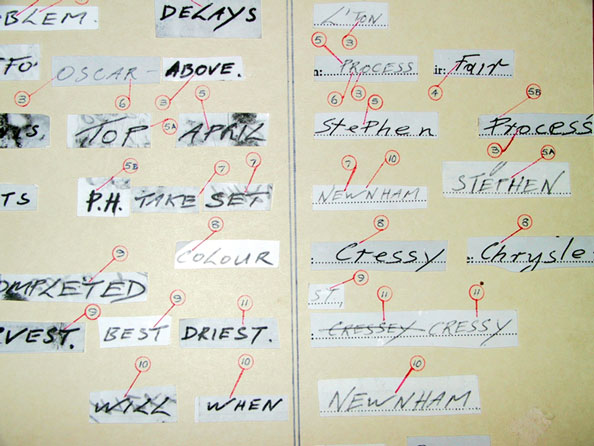 OBLEM. DELAYS
FO OSCAR - ABOVE.
3 6 3 5
TOP 5A APRIL
5B 7 7
TS P.H. TAKE SET
8
COLOUR
9
OMPLETED
9 9 11
RVEST. BEST DRIEST.
10 10
WILL WHEN
L'TON
5 3
PROCESS ir: Fair
6 3 5 4 5B
Stephen Process
7 10 3 5A
NEWNHAM STEPHEN
8 8
Cressy Chrysle
9
ST.
11 11
CRESSEY CRESSY
10
NEWNHAM